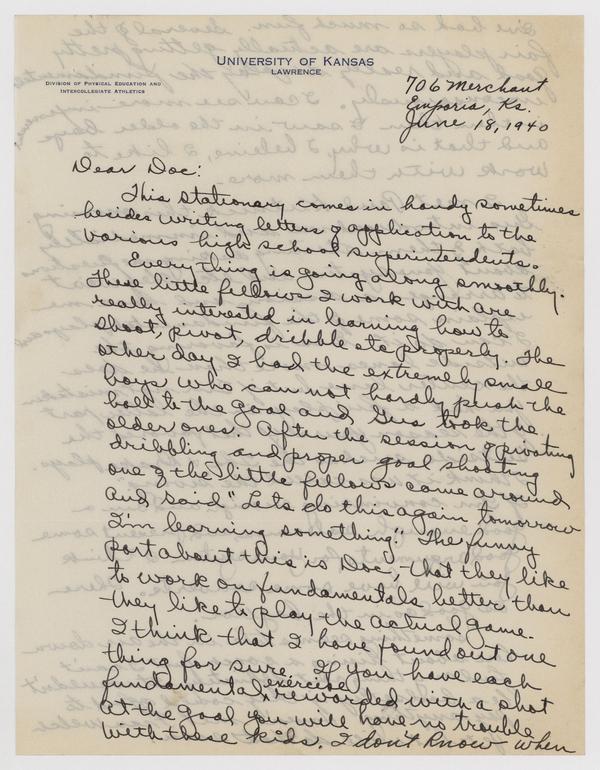 UNIVERSITY OF KANSAS
LAWRENCE
DIVISION OF PHYSICAL EDUCATION AND
INTERCOLLEGIATE ATHLETICS
706 Merchant
Emporia, Ks.
June 18, 1940
Dear Doc:
This stationary comes in handy sometimes
besides writing letters of application to the
various high school superintendents.
Everything is going along smoothly.
These little fellows I work with are
really interested in learning how to
shoot, pivot, dribble etc properly. The
other day I had the extremely small
boys who can not hardly push the
ball to the goal and Gus took the
older ones. After the session of pivoting
dribbling and proper goal shooting
one of the little fellows came around
and said "Lets do this again tomorrow
I'm learning something". The funny
part about this is Doc, that they like
to work on fundamentals better than
they like to play the actual game.
I think that I have found out one
thing for sure. If you have each
fundamental exercise rewarded with a shot
at the goal you will have no trouble
with these kids. I don't know when